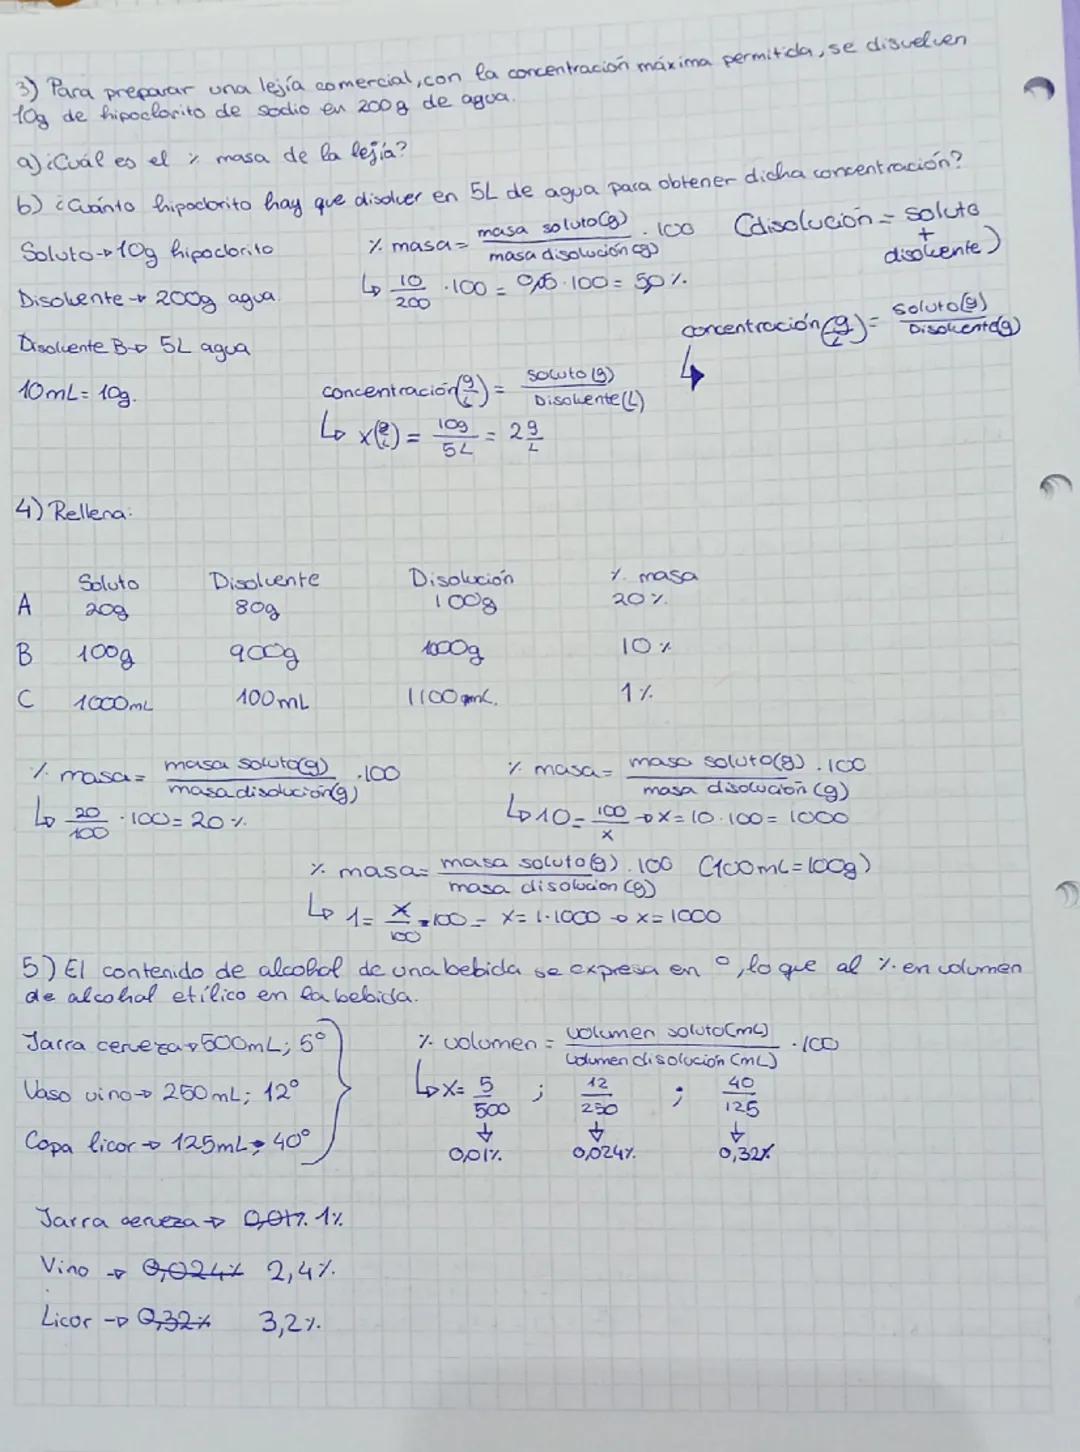 3) Para preparar una lejía comercial, con la concentración máxima permitida, se disuelven
10g de hipoclorito de sodio en 200g de agua.
a) ¿Cuál es el % masa de la lejía?
b) ¿Cuánto hipoclorito hay que disolver en 5L de agua para obtener dicha concentración?
Soluto → 10g hipoclorito
% masa = masa soluto(g) / masa disolución (g) · 100 (disolución = soluto + disolvente)
Disolvente → 200g agua.
↳ 10/200 · 100 = 0,05 · 100 = 50 %.
concentración (g/L) = soluto(g) / Disolvente(g)
↳
Disolvente B → 5L agua
10mL = 10g.
concentración (g/L) = soluto (g) / Disolvente (L)
↳ x(g/L) = 10g/5L = 2 g/L
4) Rellena:
Soluto Disolvente Disolución % masa
A 20g 80g 100g 20%.
B 100g 900g 1000g 10%
C 1000mL 100mL 1100 mL. 1%.
% masa = masa soluto(g) / masa disolución(g) · 100
↳ 20/100 · 100 = 20%.
% masa = masa soluto(g) · 100 / masa disolución (g)
↳ 10 = 100/x → x = 10 · 100 = 1000
% masa = masa soluto(g) · 100 / masa disolucion (g) (100mL = 100g)
↳ 1 = x/100 · 100 = x = 1·1000 → x = 1000
5) El contenido de alcohol de una bebida se expresa en º, lo que al % en volumen
de alcohol etílico en la bebida.
Jarra cerveza → 500mL; 5º
Vaso vino → 250mL; 12º
Copa licor → 125mL; 40º
% volumen = volumen soluto(mL) / volumen disolución (mL) · 100
↳ x = 5/500 ; 12/250 ; 40/125
0,01%. 0,024%. 0,32%
Jarra cerveza → 0,01%. 1%
Vino → 0,024% 2,4%.
Licor → 0,32% 3,2%.